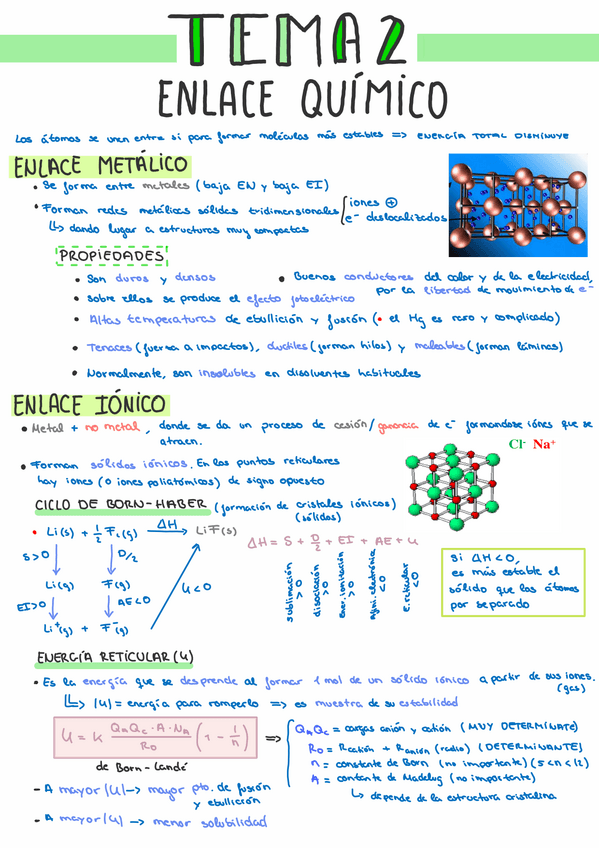 TEMA 2
ENLACE QUÍMICO
Los átomos se unen entre si para formar moléculas más estables => ENERGÍA TOTAL DISMINUYE
ENLACE METÁLICO
• Se forma entre metales (baja EN y baja EI)
• Forman redes metálicas sólidas tridimensionales { iones ⊕
e⁻ deslocalizados
↳ dando lugar a estructuras muy compactas
PROPIEDADES
• Son duros y densos
• Buenos conductores del calor y de la electricidad,
por la libertad de movimiento de e⁻
• sobre ellos se produce el efecto fotoeléctrico
• Altas temperaturas de ebullición y fusión (• el Hg es raro y complicado)
• Tenaces (fuerza a impactos), ductiles (forman hilos) y maleables (forman láminas)
• Normalmente, son insolubles en disolventes habituales
ENLACE IÓNICO
• Metal + no metal, donde se da un proceso de cesión/ganancia de e⁻ formandose iónes que se
atraen.
Cl⁻ Na⁺
• Forman sólidos iónicos. En los puntos reticulares
hay iones (o iones poliatómicos) de signo opuesto
CICLO DE BORN-HABER (formación de cristales iónicos)
(sólidos)
• Li(s) + 1/2 F₂(g) ΔH → LiF(s)
ΔH = S + D/2 + EI + AE + U
S>0 D/2
U<0
Li(g) F(g)
EI>0 AE<0
Li⁺(g) + F⁻(g)
sublimación >0
disociación >0
ener. ionización >0
afini. electrónia <0
e. reticular <0
Si ΔH<0,
es más estable el
sólido que los átomos
por separado
ENERGÍA RETICULAR (U)
• Es la energía que se desprende al formar 1 mol de un sólido iónico a partir de sus iones.
(gas)
↳ |U| = energía para romperlo => es muestra de su estabilidad
U = K (QₐQc · A · Nₐ / R₀) (1 - 1/n) =>
de Born-Landé
QₐQc = cargas anión y catión (MUY DETERMINATE)
R₀ = Rcatión + Ranión (radio) (DETERMINANTE)
n = constante de Born (no importante) (5<n<12)
A = contante de Madelug (no importante)
↳ depende de la estructura cristalina
- A mayor |U| -> mayor pto. de fusión
y ebullición
- A mayor |U| -> menor solubilidad